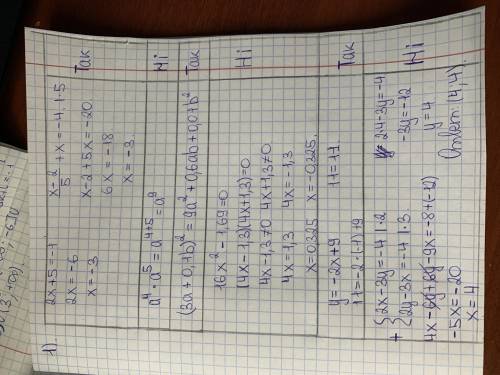 1).
2x+5=-1
2x=-6
x=-3
x-2/5 + x = -4 | · 5
x-2+5x=-20
6x=-18
x=-3.
Так
a⁴ · a⁵ = a⁴⁺⁵ = a⁹
Ні
(3a+0,1b)² = 9a² + 0,6ab + 0,01b²
Так
16x² - 1,69=0
(4x-1,3)(4x+1,3)=0
4x-1,3=0 4x+1,3=0
4x=1,3 4x=-1,3
x=0,325 x=-0,325.
Ні
y=-2x+9
11=-2·(-1)+9
11=11.
Так
+ {2x-3y=-4 | · 2
{2y-3x=-4 | · 3
4x-6y+6y-9x=-8+(-12)
-5x=-20
x=4
2·4-3y=-4
-3y=-12
y=4
Ответ: (4,4).
Ні